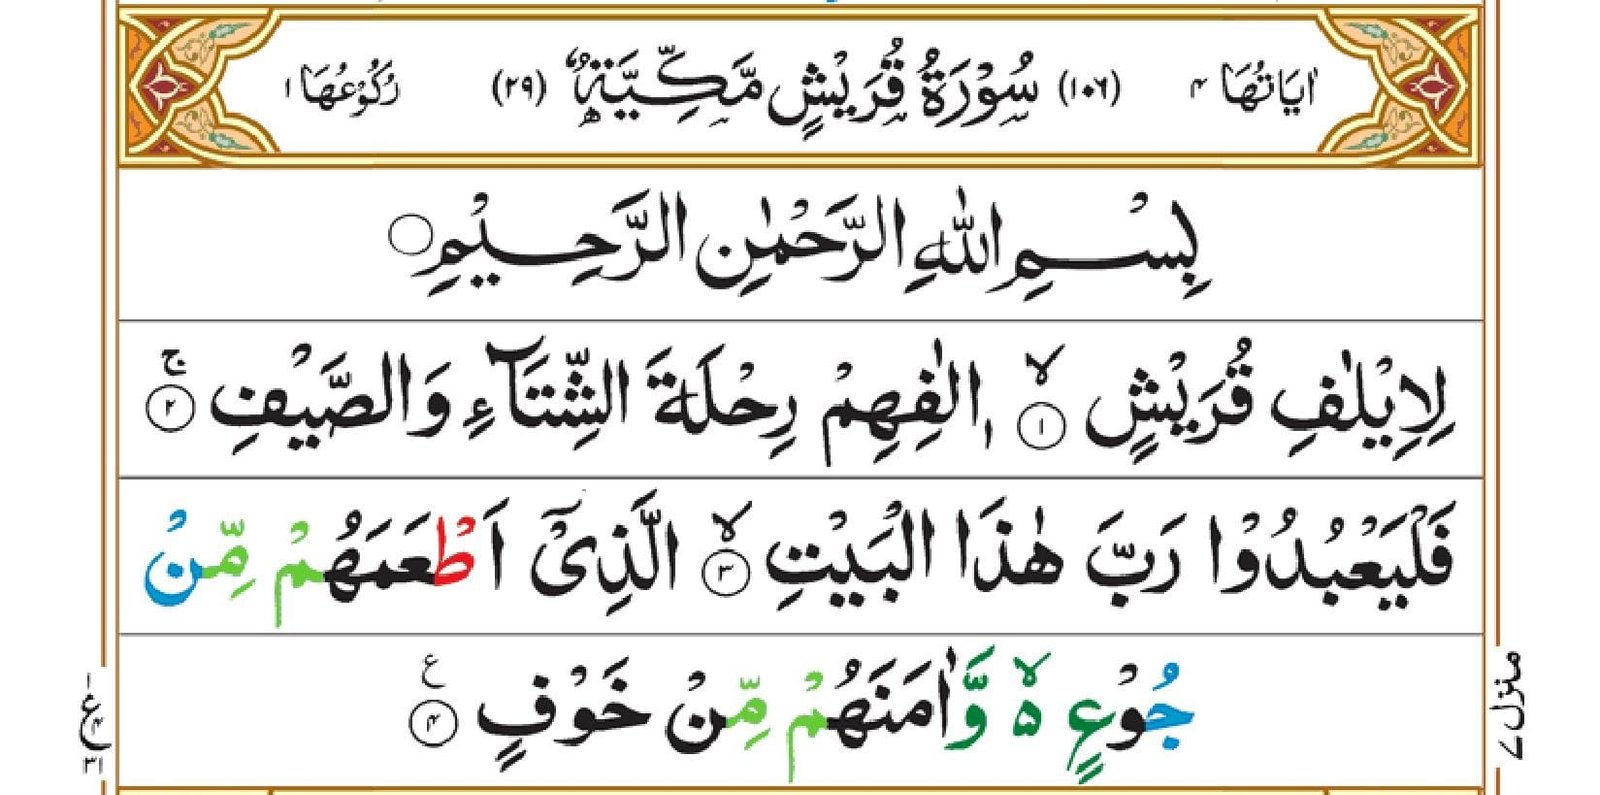 اٰيَاتُهَا ٤ (١٠٦) سُوْرَةُ قُرَيْشٍ مَّكِّيَّةٌ (٢٩) رُكُوْعُهَا ١
بِسْمِ اللّٰهِ الرَّحْمٰنِ الرَّحِيْمِ ○
لِاِيْلٰفِ قُرَيْشٍ ۙ ١ اٖلٰفِهِمْ رِحْلَةَ الشِّتَآءِ وَالصَّيْفِ ۚ ٢
فَلْيَعْبُدُوْا رَبَّ هٰذَا الْبَيْتِ ۙ ٣ الَّذِيْٓ اَطْعَمَهُمْ مِّنْ
جُوْعٍ ۙ۵ وَّاٰمَنَهُمْ مِّنْ خَوْفٍ ٤ ع
منزل ٧
١
ع ٤
٣١